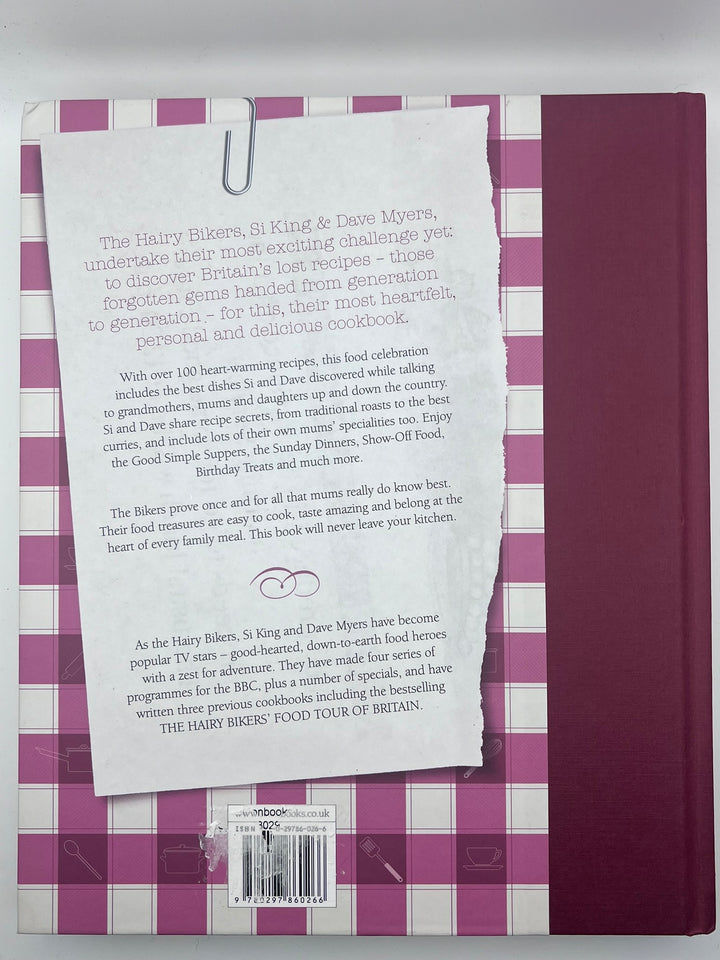 The Hairy Bikers, Si King & Dave Myers,
undertake their most exciting challenge yet:
to discover Britain's lost recipes – those
forgotten gems handed from generation
to generation – for this, their most heartfelt,
personal and delicious cookbook.
With over 100 heart-warming recipes, this food celebration
includes the best dishes Si and Dave discovered while talking
to grandmothers, mums and daughters up and down the country.
Si and Dave share recipe secrets, from traditional roasts to the best
curries, and include lots of their own mums' specialities too. Enjoy
the Good Simple Suppers, the Sunday Dinners, Show-Off Food,
Birthday Treats and much more.
The Bikers prove once and for all that mums really do know best.
Their food treasures are easy to cook, taste amazing and belong at the
heart of every family meal. This book will never leave your kitchen.
As the Hairy Bikers, Si King and Dave Myers have become
popular TV stars – good-hearted, down-to-earth food heroes
with a zest for adventure. They have made four series of
programmes for the BBC, plus a number of specials, and have
written three previous cookbooks including the bestselling
THE HAIRY BIKERS' FOOD TOUR OF BRITAIN.
ISBN
9 780297 860266